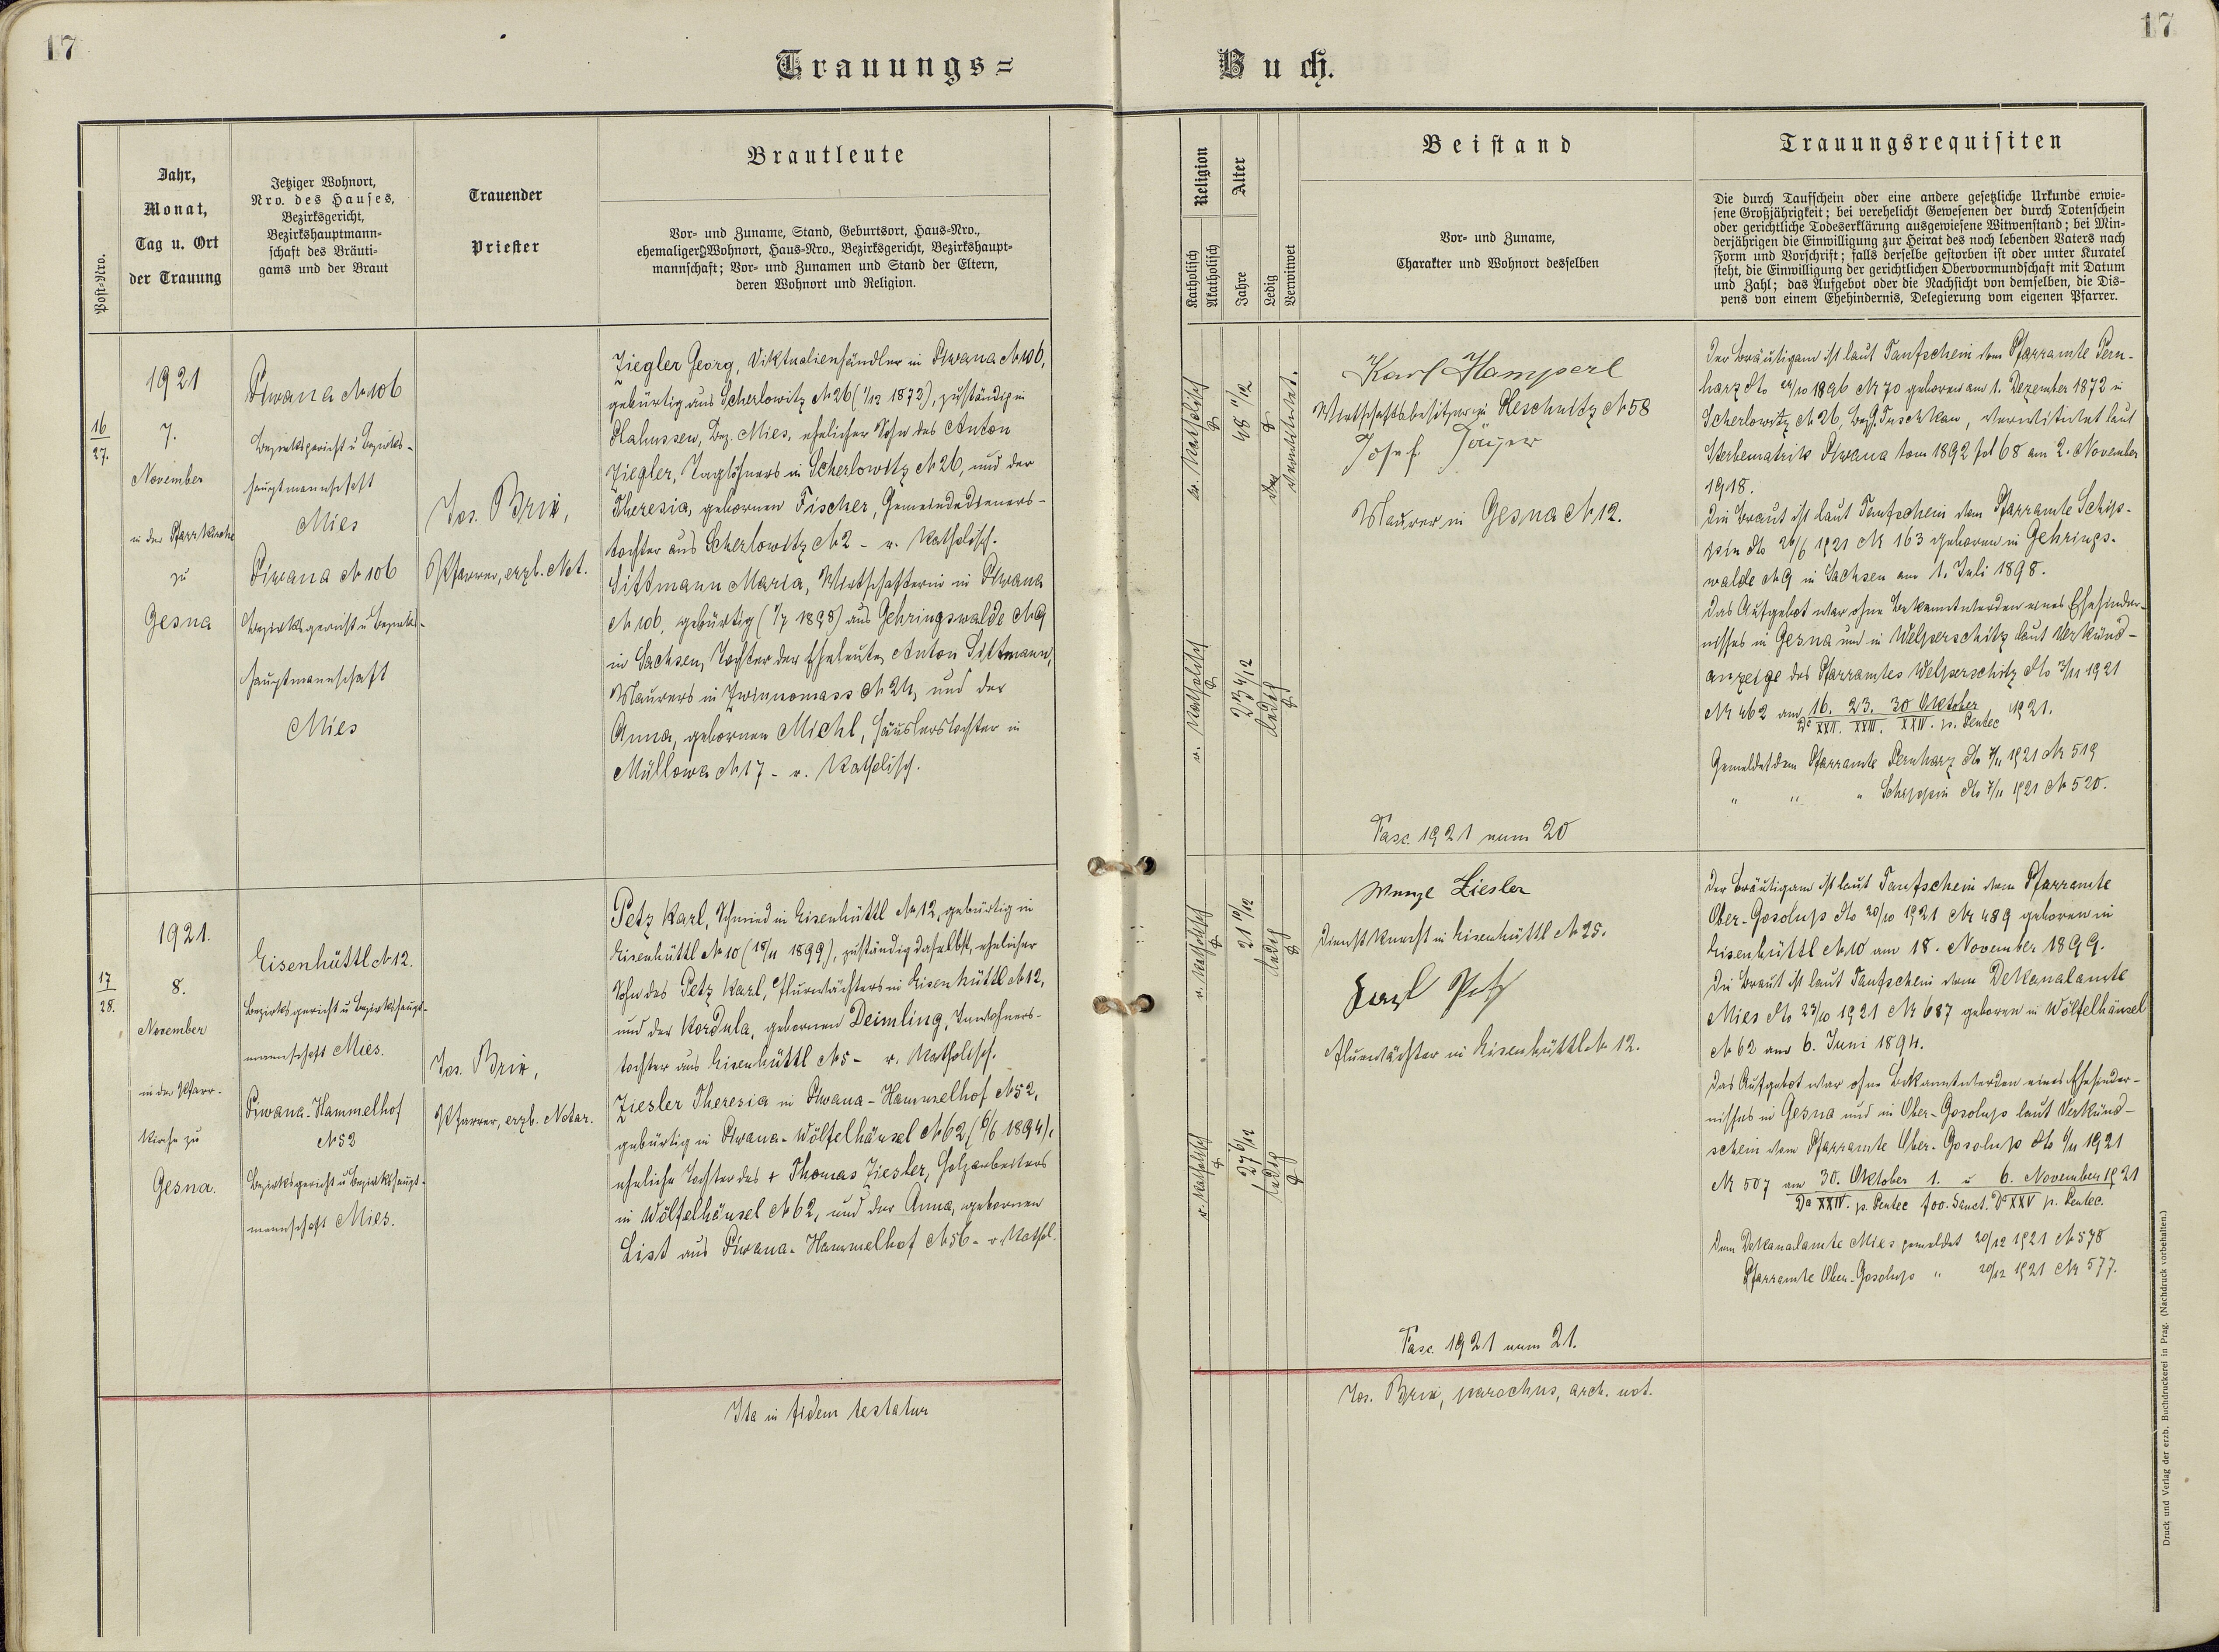 17
17
Trauungs=
Buch.
Post=Nro.
Jahr,
Monat,
Tag u. Ort
der Trauung
Jetziger Wohnort,
Nro. des Hauses,
Bezirksgericht,
Bezirkshauptmann=
schaft des Bräuti=
gams und der Braut
Trauender
Priester
Brautleute
Vor= und Zuname, Stand, Geburtsort, Haus=Nro.,
ehemaliger Wohnort, Haus=Nro., Bezirksgericht, Bezirkshaupt=
mannschaft; Vor= und Zunamen und Stand der Eltern,
deren Wohnort und Religion.
Religion
Katholisch
Akatholisch
Alter
Jahre
Ledig
Verwitwet
Beistand
Vor= und Zuname,
Charakter und Wohnort desselben
Trauungsrequisiten
Die durch Taufschein oder eine andere gesetzliche Urkunde erwie=
sene Großjährigkeit; bei verehelicht Gewesenen der durch Totenschein
oder gerichtliche Todeserklärung ausgewiesene Witwenstand; bei Min=
derjährigen die Einwilligung zur Heirat des noch lebenden Vaters nach
Form und Vorschrift; falls derselbe gestorben ist oder unter Kuratel
steht, die Einwilligung der gerichtlichen Obervormundschaft mit Datum
und Zahl; das Aufgebot oder die Nachsicht von demselben, die Dis=
pens von einem Ehehindernis, Delegierung vom eigenen Pfarrer.
16
27.
1921
7.
November
in der Pfarrkirche
zu
Gesna
Piwana № 106
Bezirksgericht u Bezirks-
hauptmannschaft
Mies
Piwana № 106
Bezirksgericht u Bezirks-
hauptmannschaft
Mies
Jos. Brix,
Pfarrer, erzb. Not.
Ziegler Georg, Viktualienhändler in Piwana № 106,
gebürtig aus Scherlowitz № 26 (1/12 1872), zuständig in
Plahussen, Bez. Mies, ehelicher Sohn des Anton
Ziegler, Taglöhners in Scherlowitz № 26, und der
Theresia, gebornen Fischer, Gemeindedieners-
tochter aus Scherlowitz № 2 - r. Katholisch.
Sittmann Maria, Wirtschafterin in Piwana
№ 106, gebürtig (1/7 1898) aus Gehringswalde № 9
in Sachsen, Tochter der Eheleute Anton Sittmann,
Maurers in Zwinnomass № 24, und der
Anna, gebornen Michl, Häuslerstochter in
Müllowa № 17 - r. Katholisch.
r. Katholisch
48 11/12
verwitwet.
r. Katholisch
23 4/12
ledig
Karl Hamperl
Wirtschaftsbesitzer in Leschnitz № 58
Josef Jäger
Maurer in Gesna № 12.
Fasc. 1921 num 20
Der Bräutigam ist laut Taufschein vom Pfarramte Pern-
harz dto 24/10 1896 № 70 geboren am 1. Dezember 1872 in
Scherlowitz № 26, Bez. Tuschkau, verwitwet laut
Sterbematrik Piwana tom 1892 fol 68 am 2. November
1918.
Die Braut ist laut Taufschein vom Pfarramte Schip-
pin dto 26/6 1921 № 163 geboren in Gehrings-
walde № 9 in Sachsen am 1. Juli 1898.
Das Aufgebot war ohne Bekanntwerden eines Ehehinder-
nisses in Gesna und in Welperschitz laut Verkünd-
anzeige des Pfarramtes Welperschitz dto 3/11 1921
№ 462 am 16. 23. 30 Oktober 1921.
Da XXII. XXIII. XXIV. p. Pentec
Gemeldet dem Pfarramte Pernharz dto 7/11 1921 № 519
" " " Schippin dto 7/11 1921 № 520.
17
28.
1921.
8.
November
in der Pfarr-
kirche zu
Gesna.
Eisenhüttl № 12.
Bezirksgericht u Bezirkshaupt-
mannschaft Mies.
Piwana-Hammelhof
№ 52
Bezirksgericht u Bezirkshaupt-
mannschaft Mies.
Jos. Brix,
Pfarrer, erzb. Notar.
Petz Karl, Schmied in Eisenhüttl № 12, gebürtig in
Eisenhüttl № 10 (18/11 1899), zuständig daselbst, ehelicher
Sohn des Petz Karl, Flurwächters in Eisenhüttl № 12,
und der Kordula, gebornen Deimling, Inwohners-
tochter aus Eisenhüttl № 5 - r. Katholisch.
Ziesler Theresia in Piwana-Hammelhof № 52,
gebürtig in Piwana-Wölfelhäusel № 62 (6/6 1894),
eheliche Tochter des + Thomas Ziesler, Holzarbeiters
in Wölfelhäusel № 62, und der Anna, gebornen
List aus Piwana-Hammelhof № 56 - r. Kathol.
r. Katholisch
21 11/12
ledig
r. Katholisch
27 6/12
ledig
Wenzl Ziesler
Dienstknecht in Eisenhüttl № 25.
Karl Petz
Flurwächter in Eisenhüttl № 12.
Fasc. 1921 num 21.
Der Bräutigam ist laut Taufschein vom Pfarramte
Ober-Gosolup dto 20/10 1921 № 489 geboren in
Eisenhüttl № 10 am 18. November 1899.
Die Braut ist laut Taufschein vom Dekanalamte
Mies dto 23/10 1921 № 687 geboren in Wölfelhäusel
№ 62 am 6. Juni 1894.
Das Aufgebot war ohne Bekanntwerden eines Ehehinder-
nisses in Gesna und in Ober-Gosolup laut Verkünd-
schein vom Pfarramte Ober-Gosolup dto 6/11 1921
№ 507 am 30. Oktober 1. u 6. November 1921
Da XXIV. p. Pentec foo. Sanct. Da XXV p. Pentec.
Dem Dekanalamte Mies gemeldet 20/12 1921 № 578
Pfarramte Ober-Gosolup " 20/12 1921 № 577.
Ita in fidem testatur
Jos. Brix, parochus, arch. not.
Druck und Verlag der erzb. Buchdruckerei in Prag. (Nachdruck vorbehalten.)